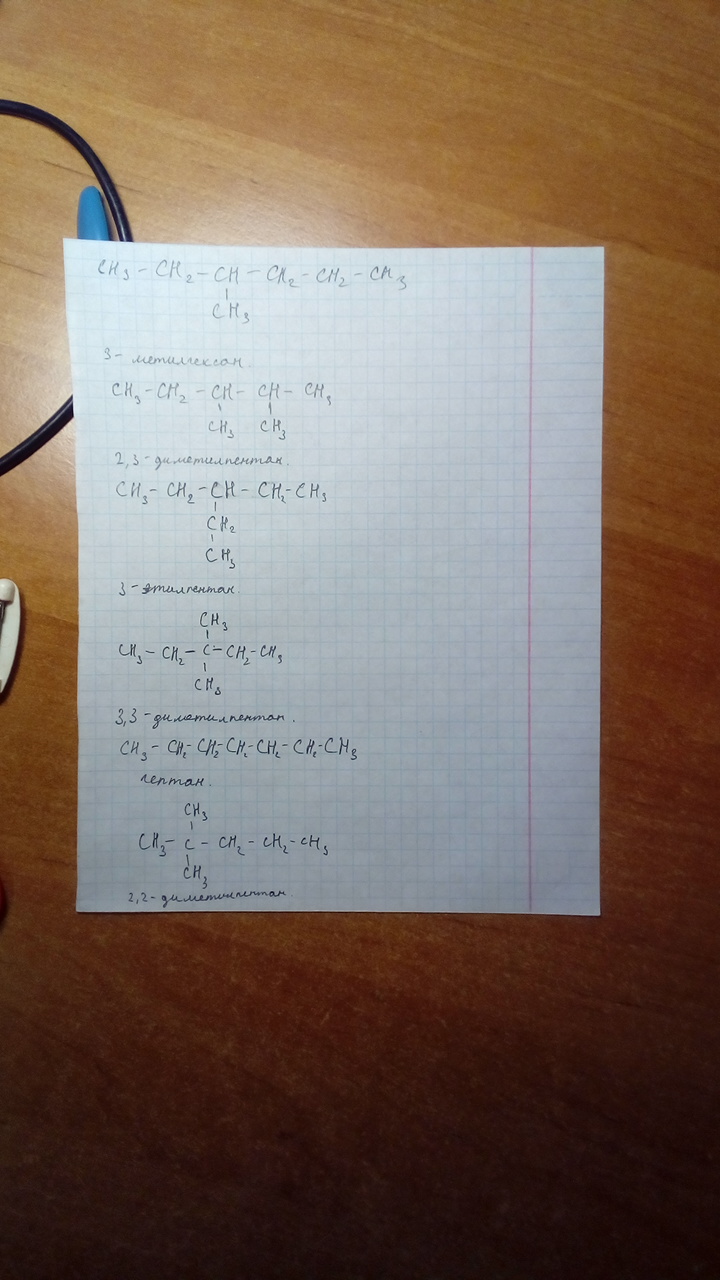 CH₃ – CH₂ – CH – CH₂ – CH₂ – CH₃
|
CH₃
3- метилгексан.
CH₃ – CH₂ – CH – CH – CH₃
| |
CH₃ CH₃
2,3-диметилпентан.
CH₃ – CH₂ – CH – CH₂ – CH₃
|
CH₂
|
CH₃
3-этилпентан.
CH₃
|
CH₃ – CH₂ – C – CH₂ – CH₃
|
CH₃
3,3-диметилпентан.
CH₃ – CH₂ – CH₂ – CH₂ – CH₂ – CH₂ – CH₃
гептан.
CH₃
|
CH₃ – C – CH₂ – CH₂ – CH₃
|
CH₃
2,2-диметилпентан.